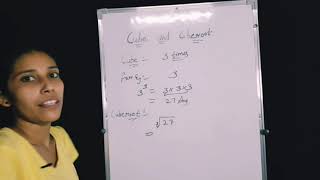 Cube and Cuberoot
Cube :- 3 times
For Eg:- 3
3³ = 3×3×3
= 27 Ans
Cuberoot :-
= ∛27